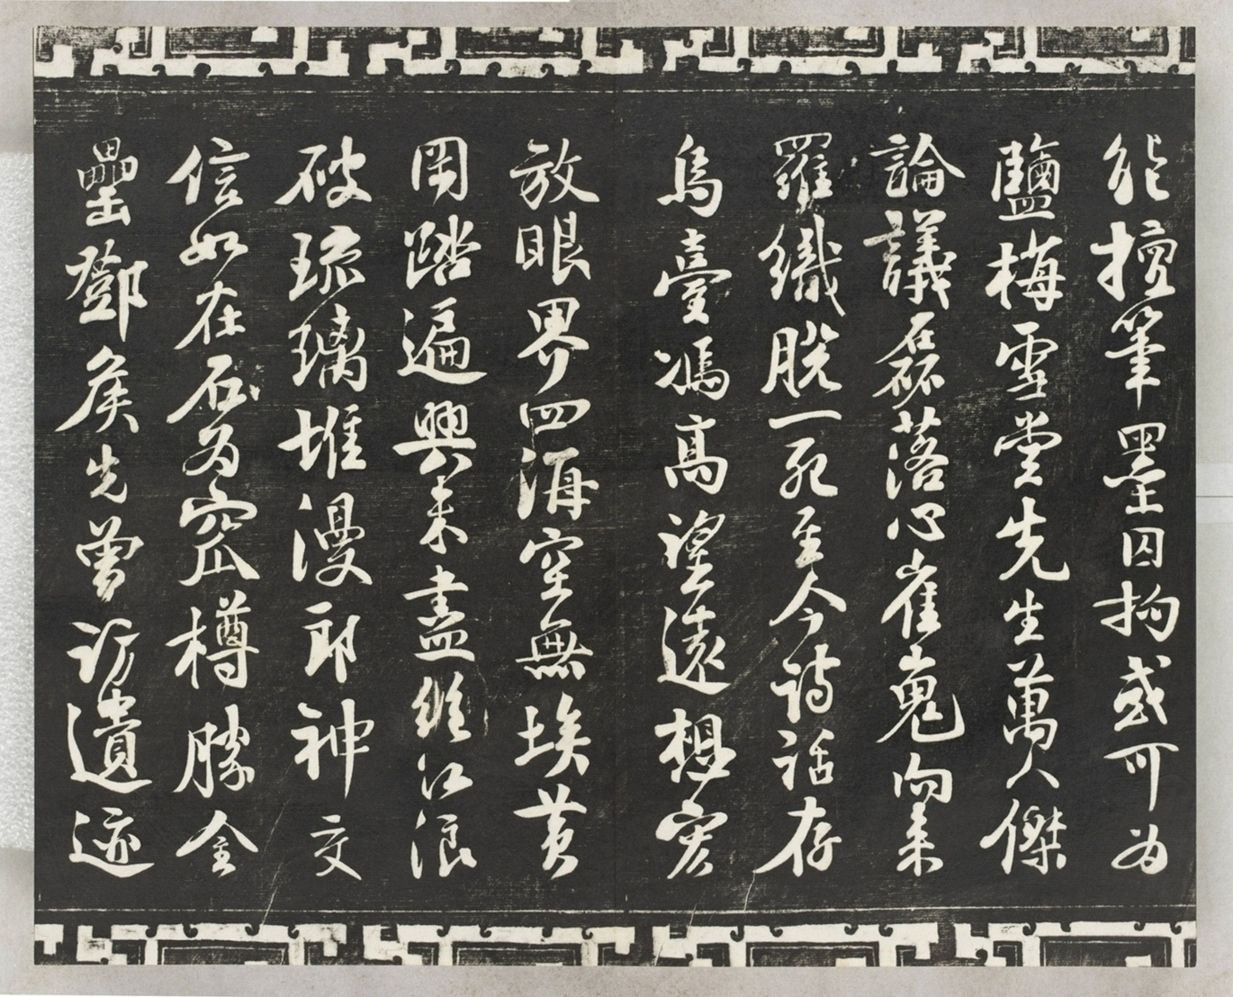 能擅筆墨囚拘或可為
鹽梅雪堂先生萬人傑
論議磊落心崔嵬向來
羅織脫一死至今詩話存
烏臺馮高望遠想宏
放眼界四海空無埃黃
岡踏遍興未盡縱江浪
破琉璃堆漫郎神交
信如在石為窊樽勝金
罍鄧侯先曾訪遺迹